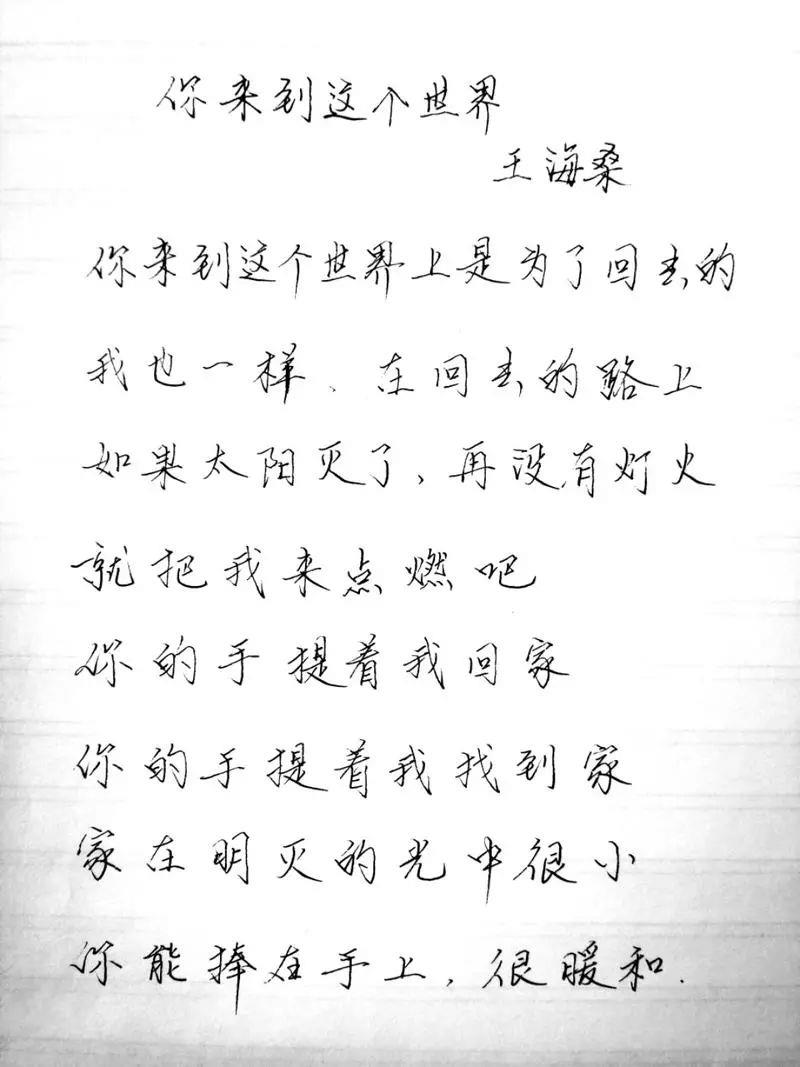 你来到这个世界
王海桑
你来到这个世界上是为了回去的
我也一样、在回去的路上
如果太阳灭了,再没有灯火
就把我来点燃吧
你的手提着我回家
你的手提着我找到家
家在明灭的光中很小
你能捧在手上,很暖和.